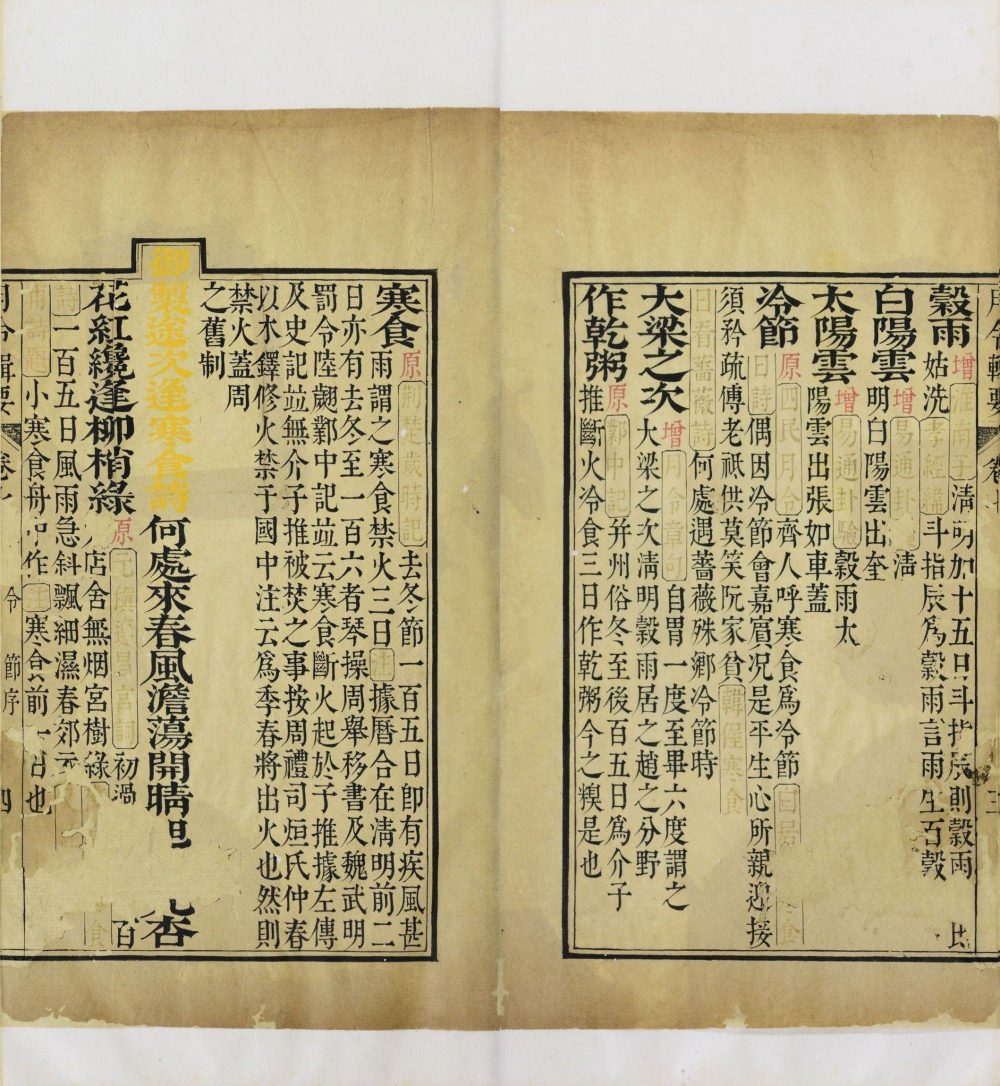 月令輯要 卷 三
穀雨 增 淮南子 清明加十五日斗指辰則穀雨 比
姑洗 孝經緯 斗指辰爲穀雨言雨生百穀
白陽雲 增 易通卦 清
明白陽雲出奎
太陽雲 增 易通卦驗 穀雨太
陽雲出張如車蓋
冷節 原 四民月令 齊人呼寒食爲冷節 白居 食
日詩 偶因冷節會嘉賓况是平生心所親迎接
須矜疏傳老祇供莫笑阮家貧 韓偓寒食
日看薔薇詩 何處遇薔薇殊鄉冷節時
大梁之次 增 月令章句 自胃一度至畢六度謂之
大梁之次清明穀雨居之趙之分野
作乾粥 原 鄴中記 并州俗冬至後百五日爲介子
推斷火冷食三日作乾粥今之糗是也
寒食 原 荆楚歲時記 去冬節一百五日卽有疾風甚
雨謂之寒食禁火三日 注 據曆合在清明前二
日亦有去冬至一百六者琴操周舉移書及魏武明
罰令陸翽鄴中記竝云寒食斷火起於子推據左傳
及史記竝無介子推被焚之事按周禮司烜氏仲春
以木鐸修火禁于國中注云爲季春將出火也然則
禁火蓋周
之舊制
御製途次逢寒食詩 何處來春風澹蕩開晴 杏
花紅纔逢柳梢綠 原 元稹連昌宮詞 初過 百
店舍無烟宮樹綠 食
詩 一百五日風雨急斜飄細濕春郊
甫詩題 小寒食舟中作 注 寒食前一日也
月令輯要 卷 令 節序 四